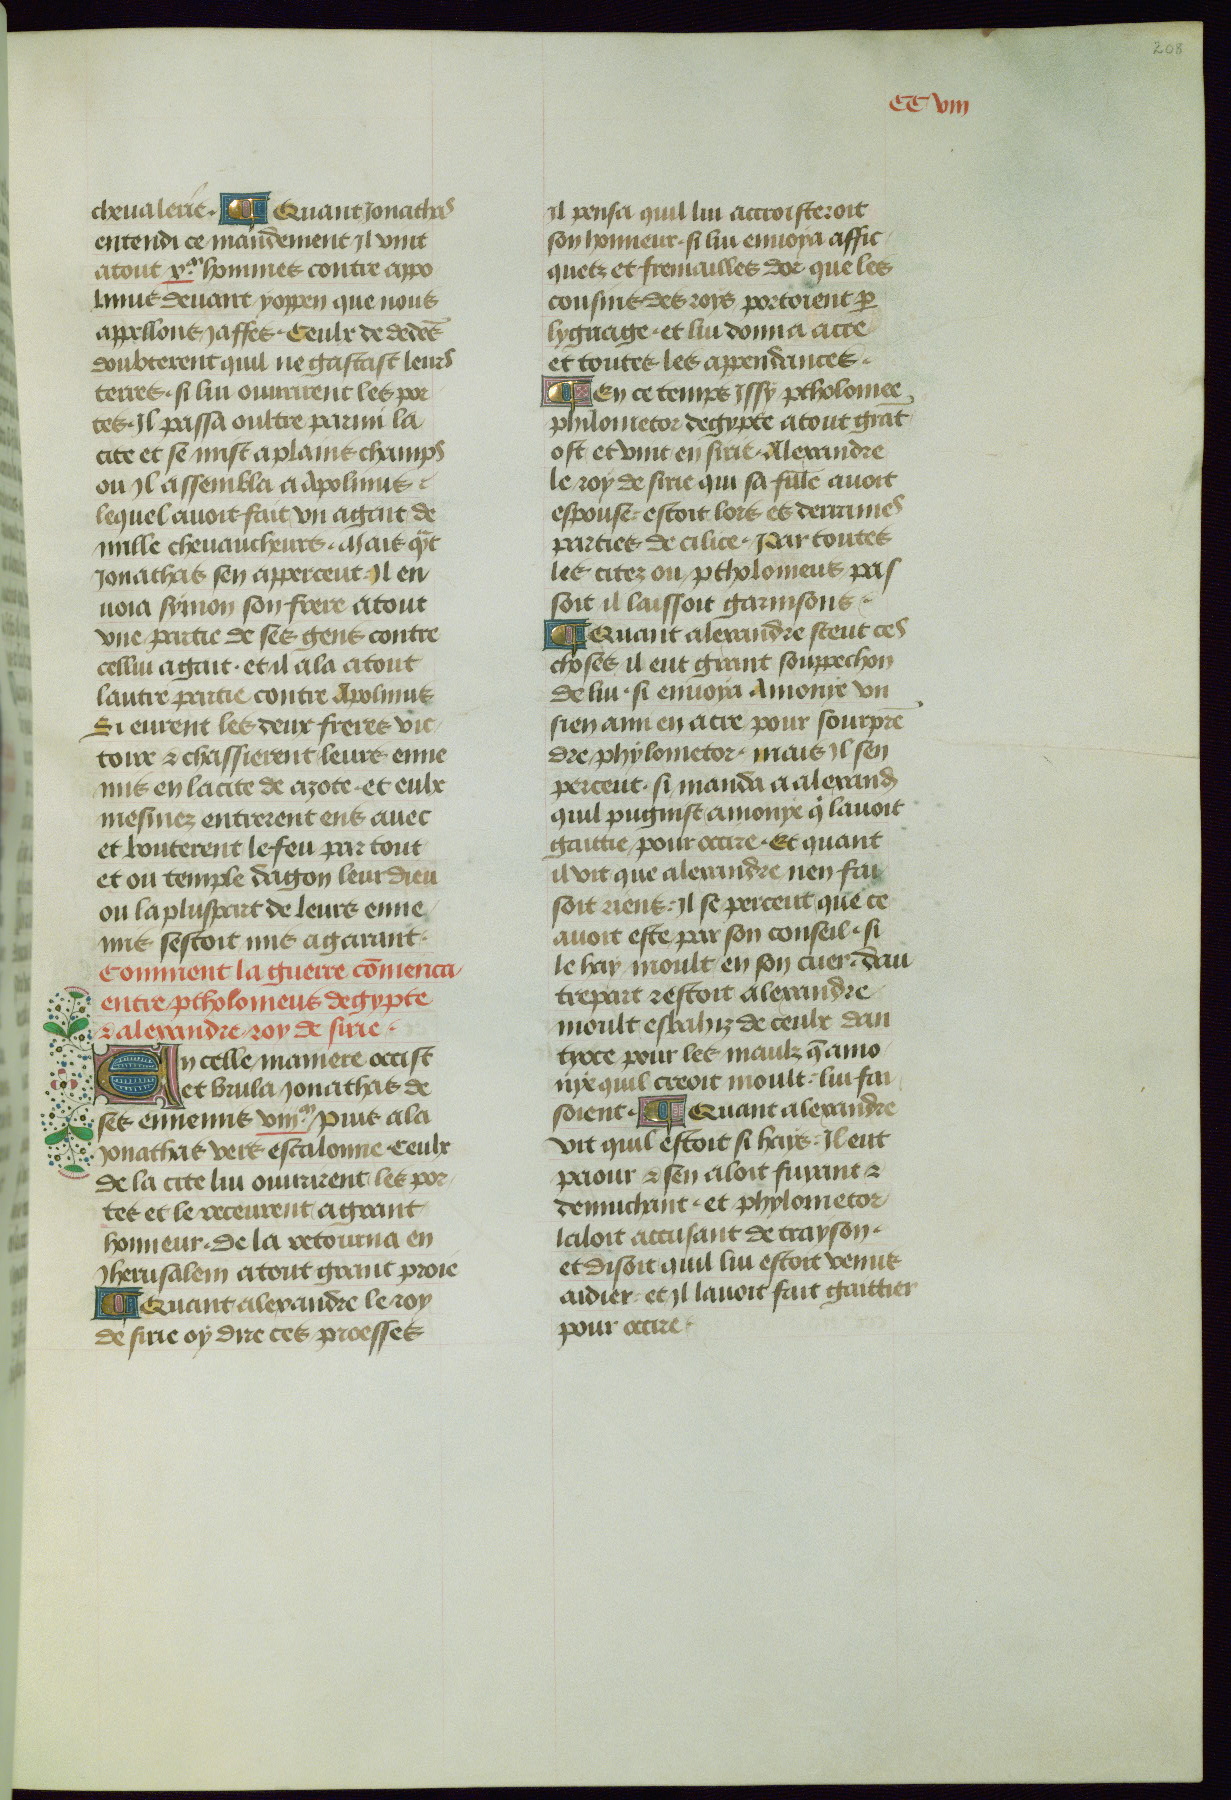 208
CC viii
cheualerie. Quant Jonathas
entendi ce mandement Jl vint
atout x.m hommes contre appo
linus deuant yoppen que nous
appellons Jaffes. Ceulx de dedẽs
doubterent quil ne gastast leurs
terres. si lui ouurirent les por
tes. Jl passa oultre parmi la
cite et se mist a plains champs
ou Jl assembla a Apolinus
lequel auoit fait vn agait de
mille cheuaucheurs. Mais q̃t
Jonathas sen apperceut. Jl en
uoia symon son frere atout
vne partie de ses gens contre
cellui agait. et il ala atout
lautre partie contre Apolinus
Si eurent les deux freres vic
toire ⁊ chassierent leurs enne
mis en la cite de azote. et eulx
mesmez entrerent ens auec
et bouterent le feu par tout
et ou temple dagon leur dieu
ou la pluspart de leurs enne
mis sestoit mis a garant.
Comment la guerre cõmenca
entre ptholomeus degypte
⁊ alexandre roy de sirie.
En celle maniere occist
et brula Jonathas de
ses ennemis viii.m Puis ala
Jonathas vers escalonne. Ceulx
de la cite lui ouurirent les por
tes et le receurent a grant
honneur. De la retourna en
Jherusalem atout grant proie
Quant alexandre le roy
de sirie oy dire ces proesses
Jl pensa quil lui accroisteroit
son honneur. si lui enuoya affic
quetz et fremailles dor que les
cousins des roys portoient ꝑ
lygnage. et lui donna acre
et toutes les appendances.
En ce temps Jssy ptholomee
philometor degypte atout grãt
ost et vint en sirie. Alexandre
le roy de sirie qui sa fille auoit
espouse. estoit lors es derraines
parties de cilice. Par toutes
les citez ou ptholomeus pas
soit il laissoit garnisons.
Quant alexandre sceut ces
choses il eut grant souppechon
de lui. si enuoya Amonye vn
sien ami en acre pour sourprẽ
dre phylometor. mais Jl sen
perceut. si manda a alexand̃
quil pugnist amonye q̃ lauoit
gaittie pour occire. Et quant
il vit que alexandre nen fai
soit riens. Jl se perceut que ce
auoit este par son conseil. si
le hay moult en son cuer. dau
trepart restoit alexandre
moult esbahiz de ceulx dan
tyoce pour les maulx q̃ amo
nye quil creoit moult lui fai
soient. Quant alexandre
vit quil estoit si hays. Jl eut
paour ⁊ sen aloit fuyant ⁊
demuchant. et phylometor
laloit accusant de trayson.
et disoit quil lui estoit venus
aidier. et Jl lauoit fait gaittier
pour occire.